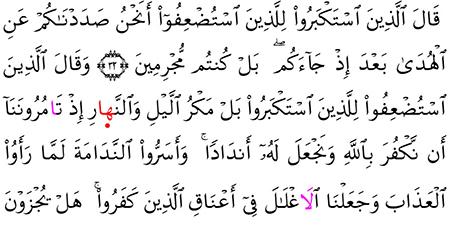 قَالَ ٱلَّذِينَ ٱسْتَكْبَرُوا۟ لِلَّذِينَ ٱسْتُضْعِفُوٓا۟ أَنَحْنُ صَدَدْنَـٰكُمْ عَنِ
ٱلْهُدَىٰ بَعْدَ إِذْ جَآءَكُم ۖ بَلْ كُنتُم مُّجْرِمِينَ ﴿٣٢﴾ وَقَالَ ٱلَّذِينَ
ٱسْتُضْعِفُوا۟ لِلَّذِينَ ٱسْتَكْبَرُوا۟ بَلْ مَكْرُ ٱلَّيْلِ وَٱلنَّهِارِ إِذْ تَامُرُونَنَآ
أَن نَّكْفُرَ بِٱللَّهِ وَنَجْعَلَ لَهُۥٓ أَندَادًا ۚ وَأَسَرُّوا۟ ٱلنَّدَامَةَ لَمَّا رَأَوُا۟
ٱلْعَذَابَ وَجَعَلْنَا ٱلَاغْلَـٰلَ فِىٓ أَعْنَاقِ ٱلَّذِينَ كَفَرُوا۟ ۚ هَلْ يُجْزَوْنَ